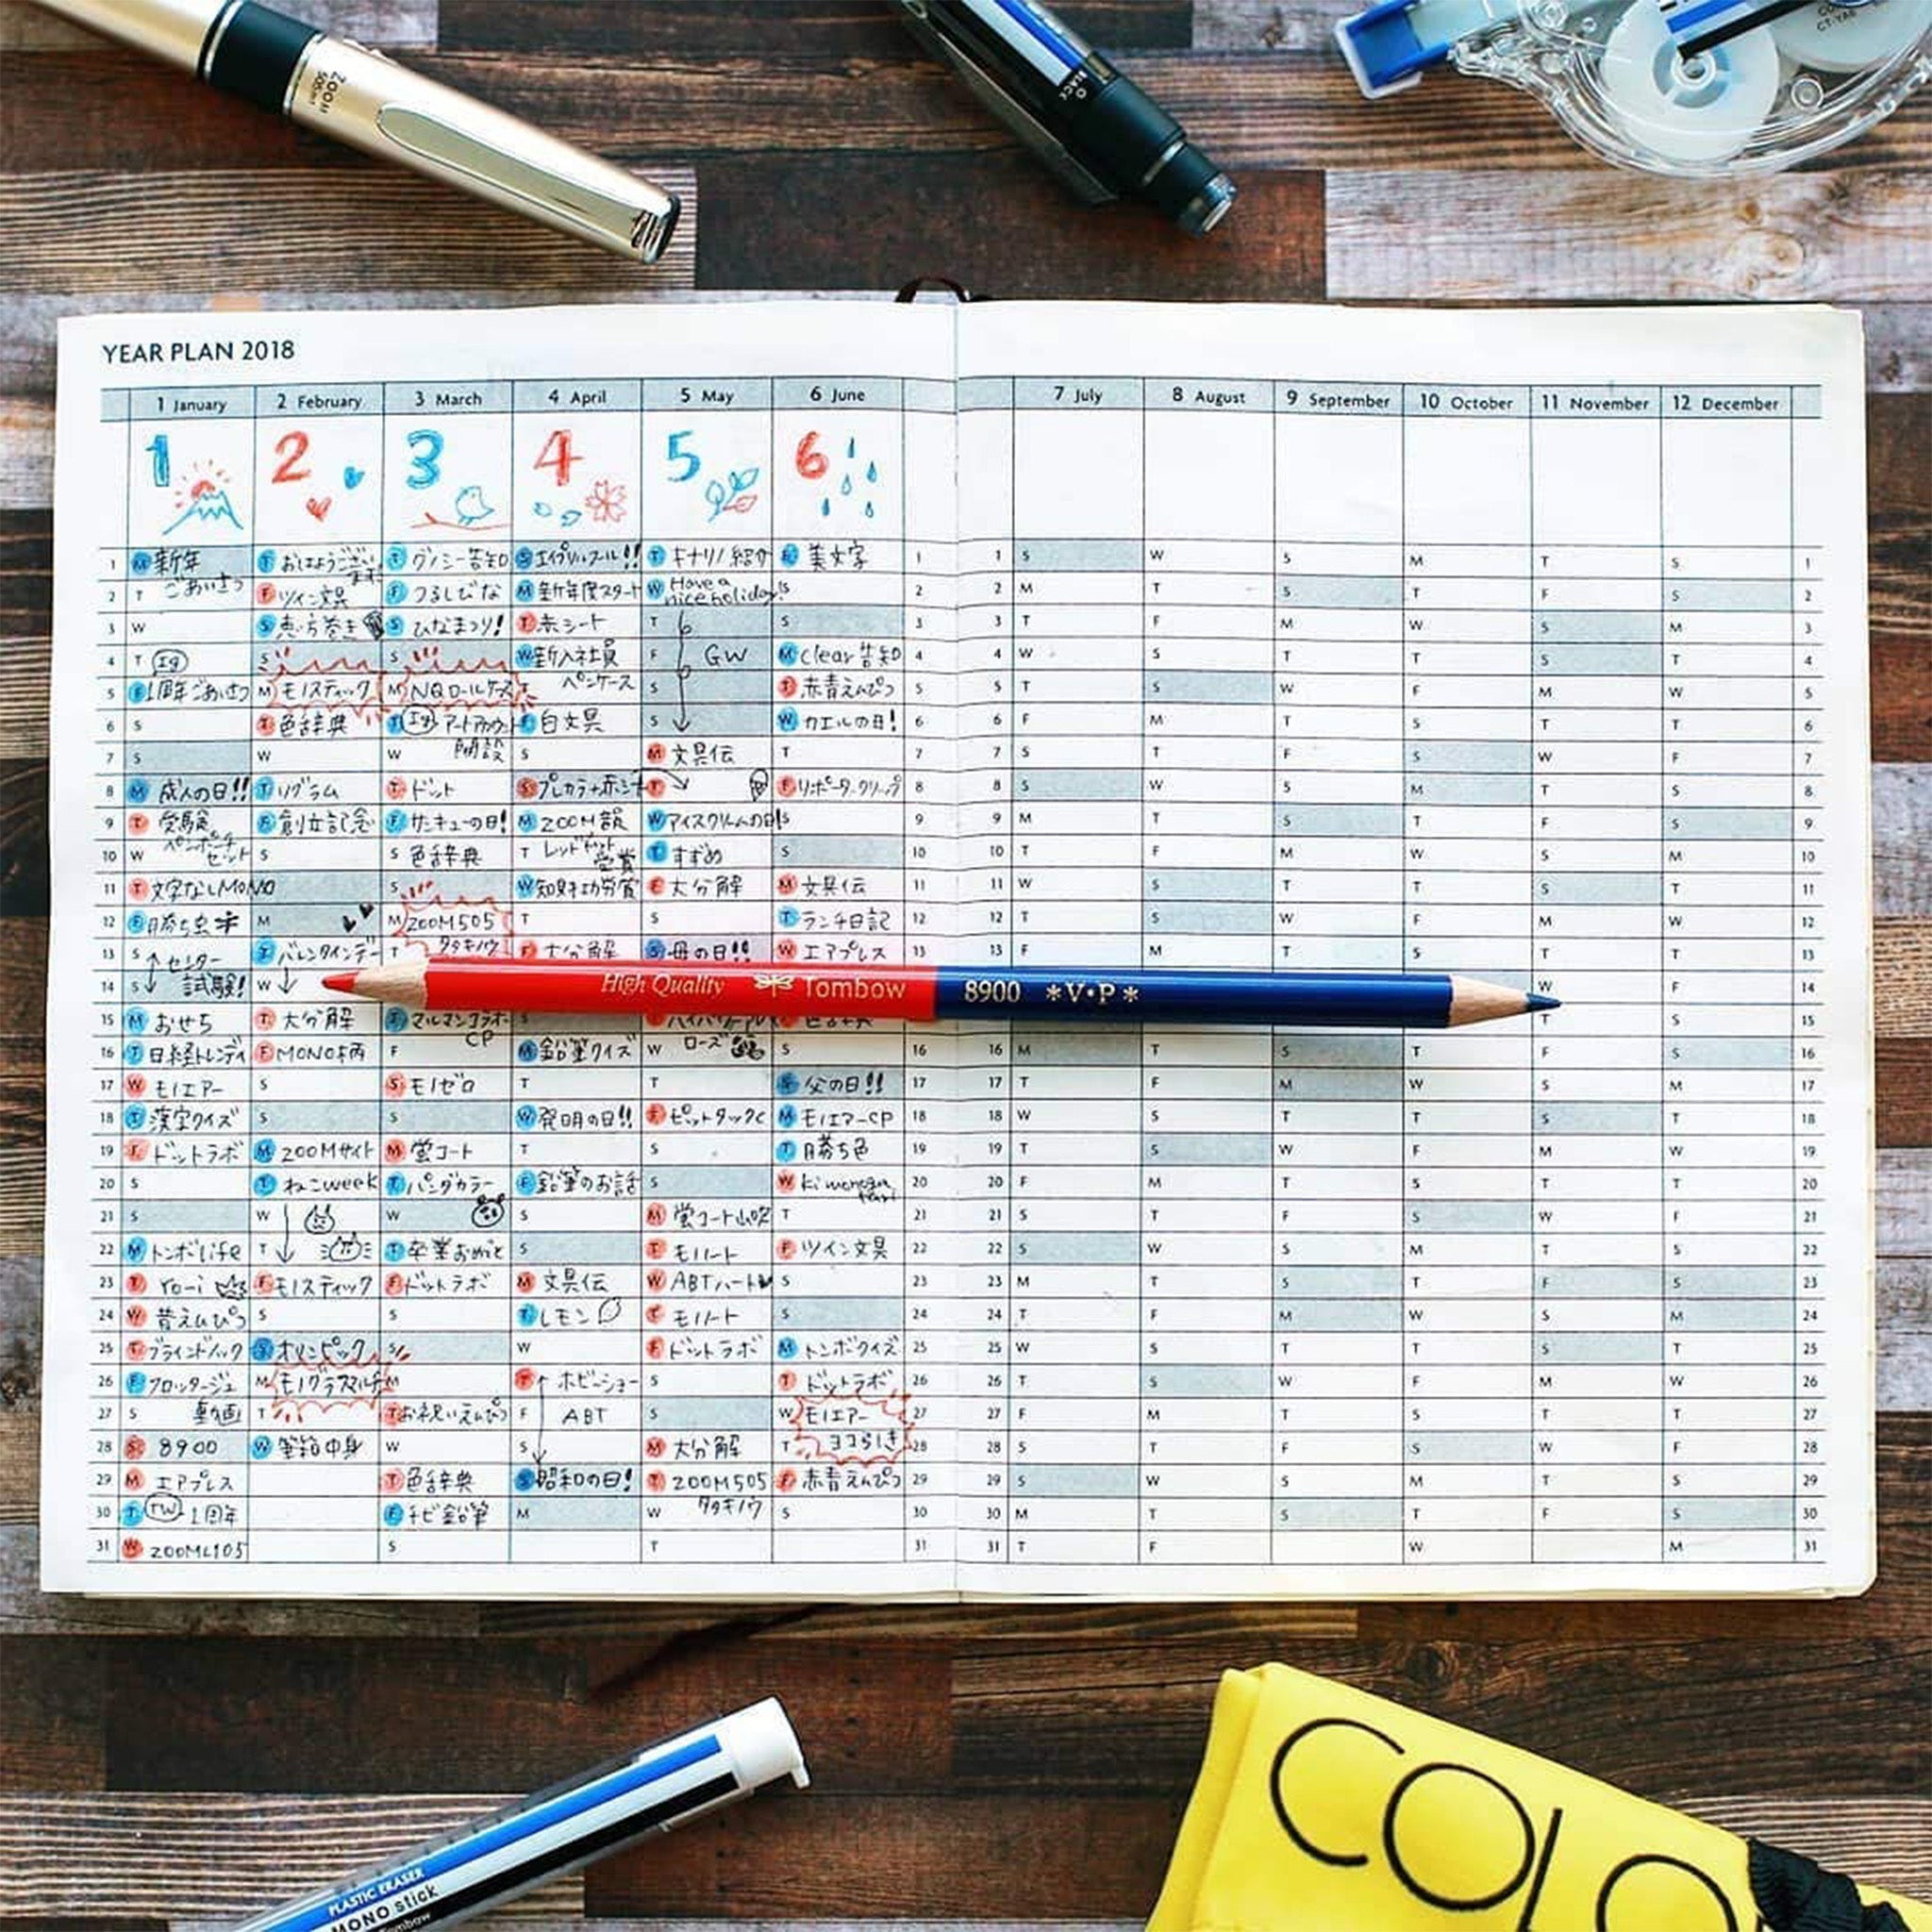 ZOOM
CT-YA6
YEAR PLAN 2018
1 January 2 February 3 March 4 April 5 May 6 June 7 July 8 August 9 September 10 October 11 November 12 December
1 2 3 4 5 6
1 M 新年 T おはようござい T グノシー告知 S エイプリルフール!! T キナリノ紹介 F 美文字 1 1 S W S M T S 1
2 T ごあいさつ F ツイン文具 F つるしびな M 新年度スタート W Have a nice holiday! S 2 2 M T S T F S 2
3 W S 恵方巻き S ひなまつり! T 赤シート T S 3 3 T F M W S M 3
4 T Ig S S W 新入社員 F GW M clear告知 4 4 W S T T S T 4
5 F 1周年ごあいさつ M モノスティック M NQロールケース T ペンケース S T 赤青えんぴつ 5 5 T S W F M W 5
6 S T 色辞典 T Ig アートアカウント F 白文具 S W カエルの日! 6 6 F M T S T T 6
7 S W W 開設 S M 文具伝 T 7 7 S T F S W F 7
8 M 成人の日!! T リグラム T ドット S プレカラ+赤シート T F リポータークリップ 8 8 S W S M T S 8
9 T 受験 F 創立記念 F サンキューの日! M ZOOM韻 W アイスクリームの日! S 9 9 M T S T F S 9
10 W ペンポーチセット S S 色辞典 T レッドドット受賞 T すずめ S 10 10 T F M W S M 10
11 T 文字なしMONO S W 知財功労賞 F 大分解 M 文具伝 11 11 W S T T S T 11
12 F 勝ち虫 M M ZOOM505 T S T ランチ日記 12 12 T S W F M W 12
13 S センター T バレンタインデー T タタキノウ F 大分解 S 母の日!! W エアプレス 13 13 F M T S T T 13
14 S 試験! W W F 14
High Quality Tombow 8900 *V•P*
15 M おせち T 大分解 T マルマンコラボ T S 15
16 T 日経トレンディ F MONO柄 F CP M 鉛筆クイズ W ローズ S 16 16 M T S T F S 16
17 W モノエアー S S モノゼロ T T S 父の日!! 17 17 T F M W S M 17
18 T 漢字クイズ S S W 発明の日!! F ピットタックC M モノエアーCP 18 18 W S T T S T 18
19 F ドットラボ M ZOOMサイト M 蛍コート T S T 勝ち色 19 19 T S W F M W 19
20 S T ねこweek T パンダカラー F 鉛筆のお話 S W 20 20 F M T S T T 20
21 S W W S M 蛍コート山吹 T 21 21 S T F S W F 21
22 M トンボlife T T 卒業おめでと S T モノノート F ツイン文具 22 22 S W S M T S 22
23 T ro-i F モノスティック F ドットラボ M 文具伝 W ABTハート S 23 23 M T S T F S 23
24 W 昔えんぴつ S S T レモン T モノノート S 24 24 T F M W S M 24
25 T ブラインドノック S オリンピック S W F ドットラボ M トンボクイズ 25 25 W S T T S T 25
26 F フロッタージュ M モノグラフマルチ M T ホビーショー S T ドットラボ 26 26 T S W F M W 26
27 S 動画 T T お祝いえんぴつ F ABT S W モノエアー 27 27 F M T S T T 27
28 S 8900 W 筆箱中身 W S M 大分解 T ヨコらいき 28 28 S T F S W F 28
29 M エアプレス T 色辞典 S 昭和の日! T ZOOM505 F 赤青えんぴつ 29 29 S W S M T S 29
30 T TW 1周年 F チビ鉛筆 M W タタキノウ S 30 30 M T S T F S 30
31 W ZOOML105 S T 31 31 T F W M 31
PLASTIC ERASER
MONO stick
Tombow
COLO